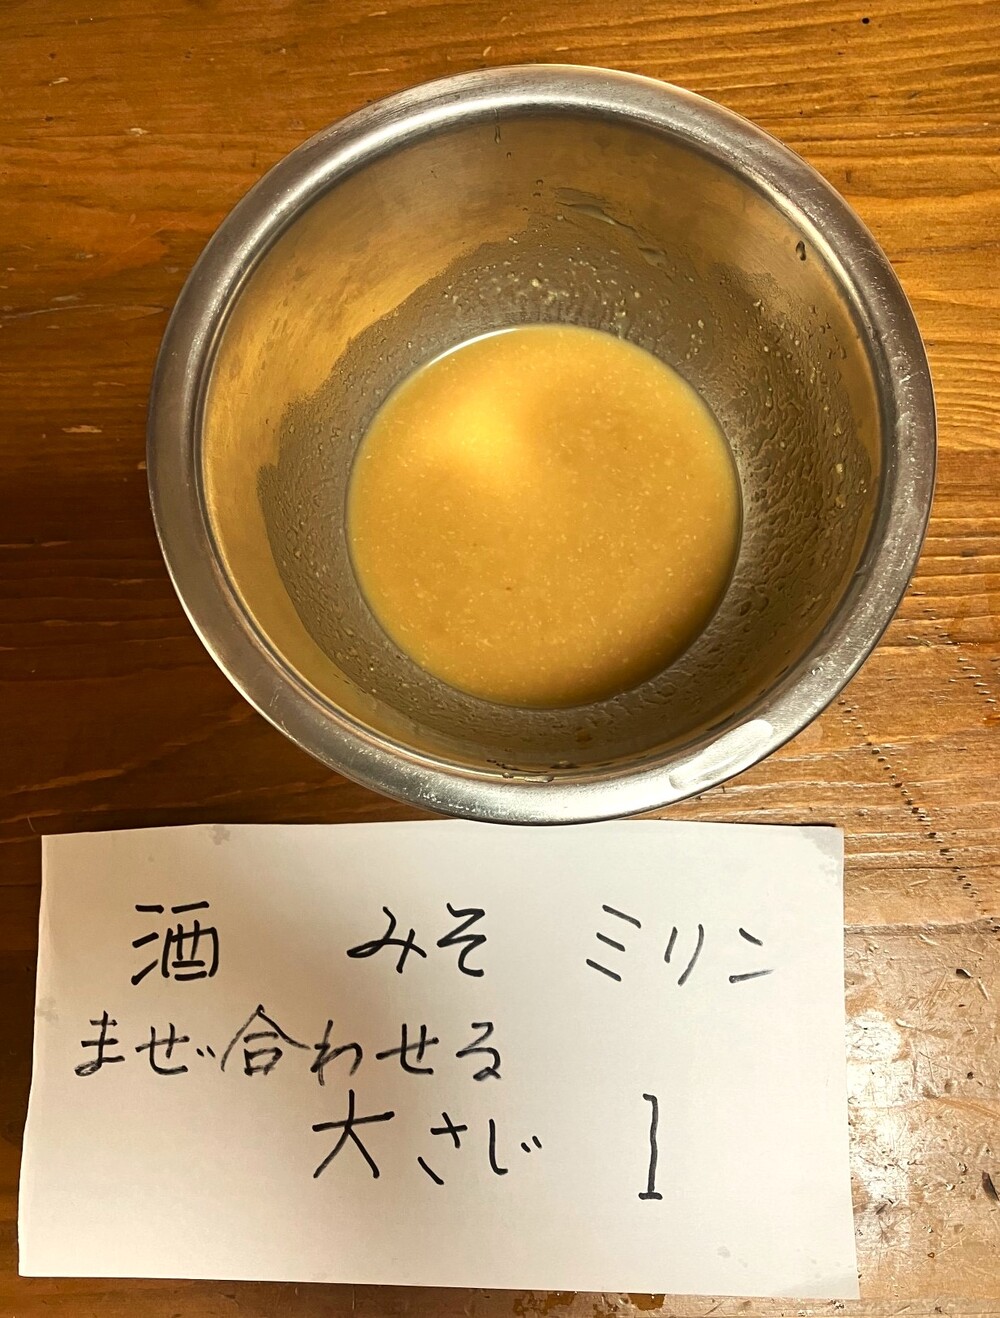 酒 みそ ミリン
まぜ合わせる
大さじ 1